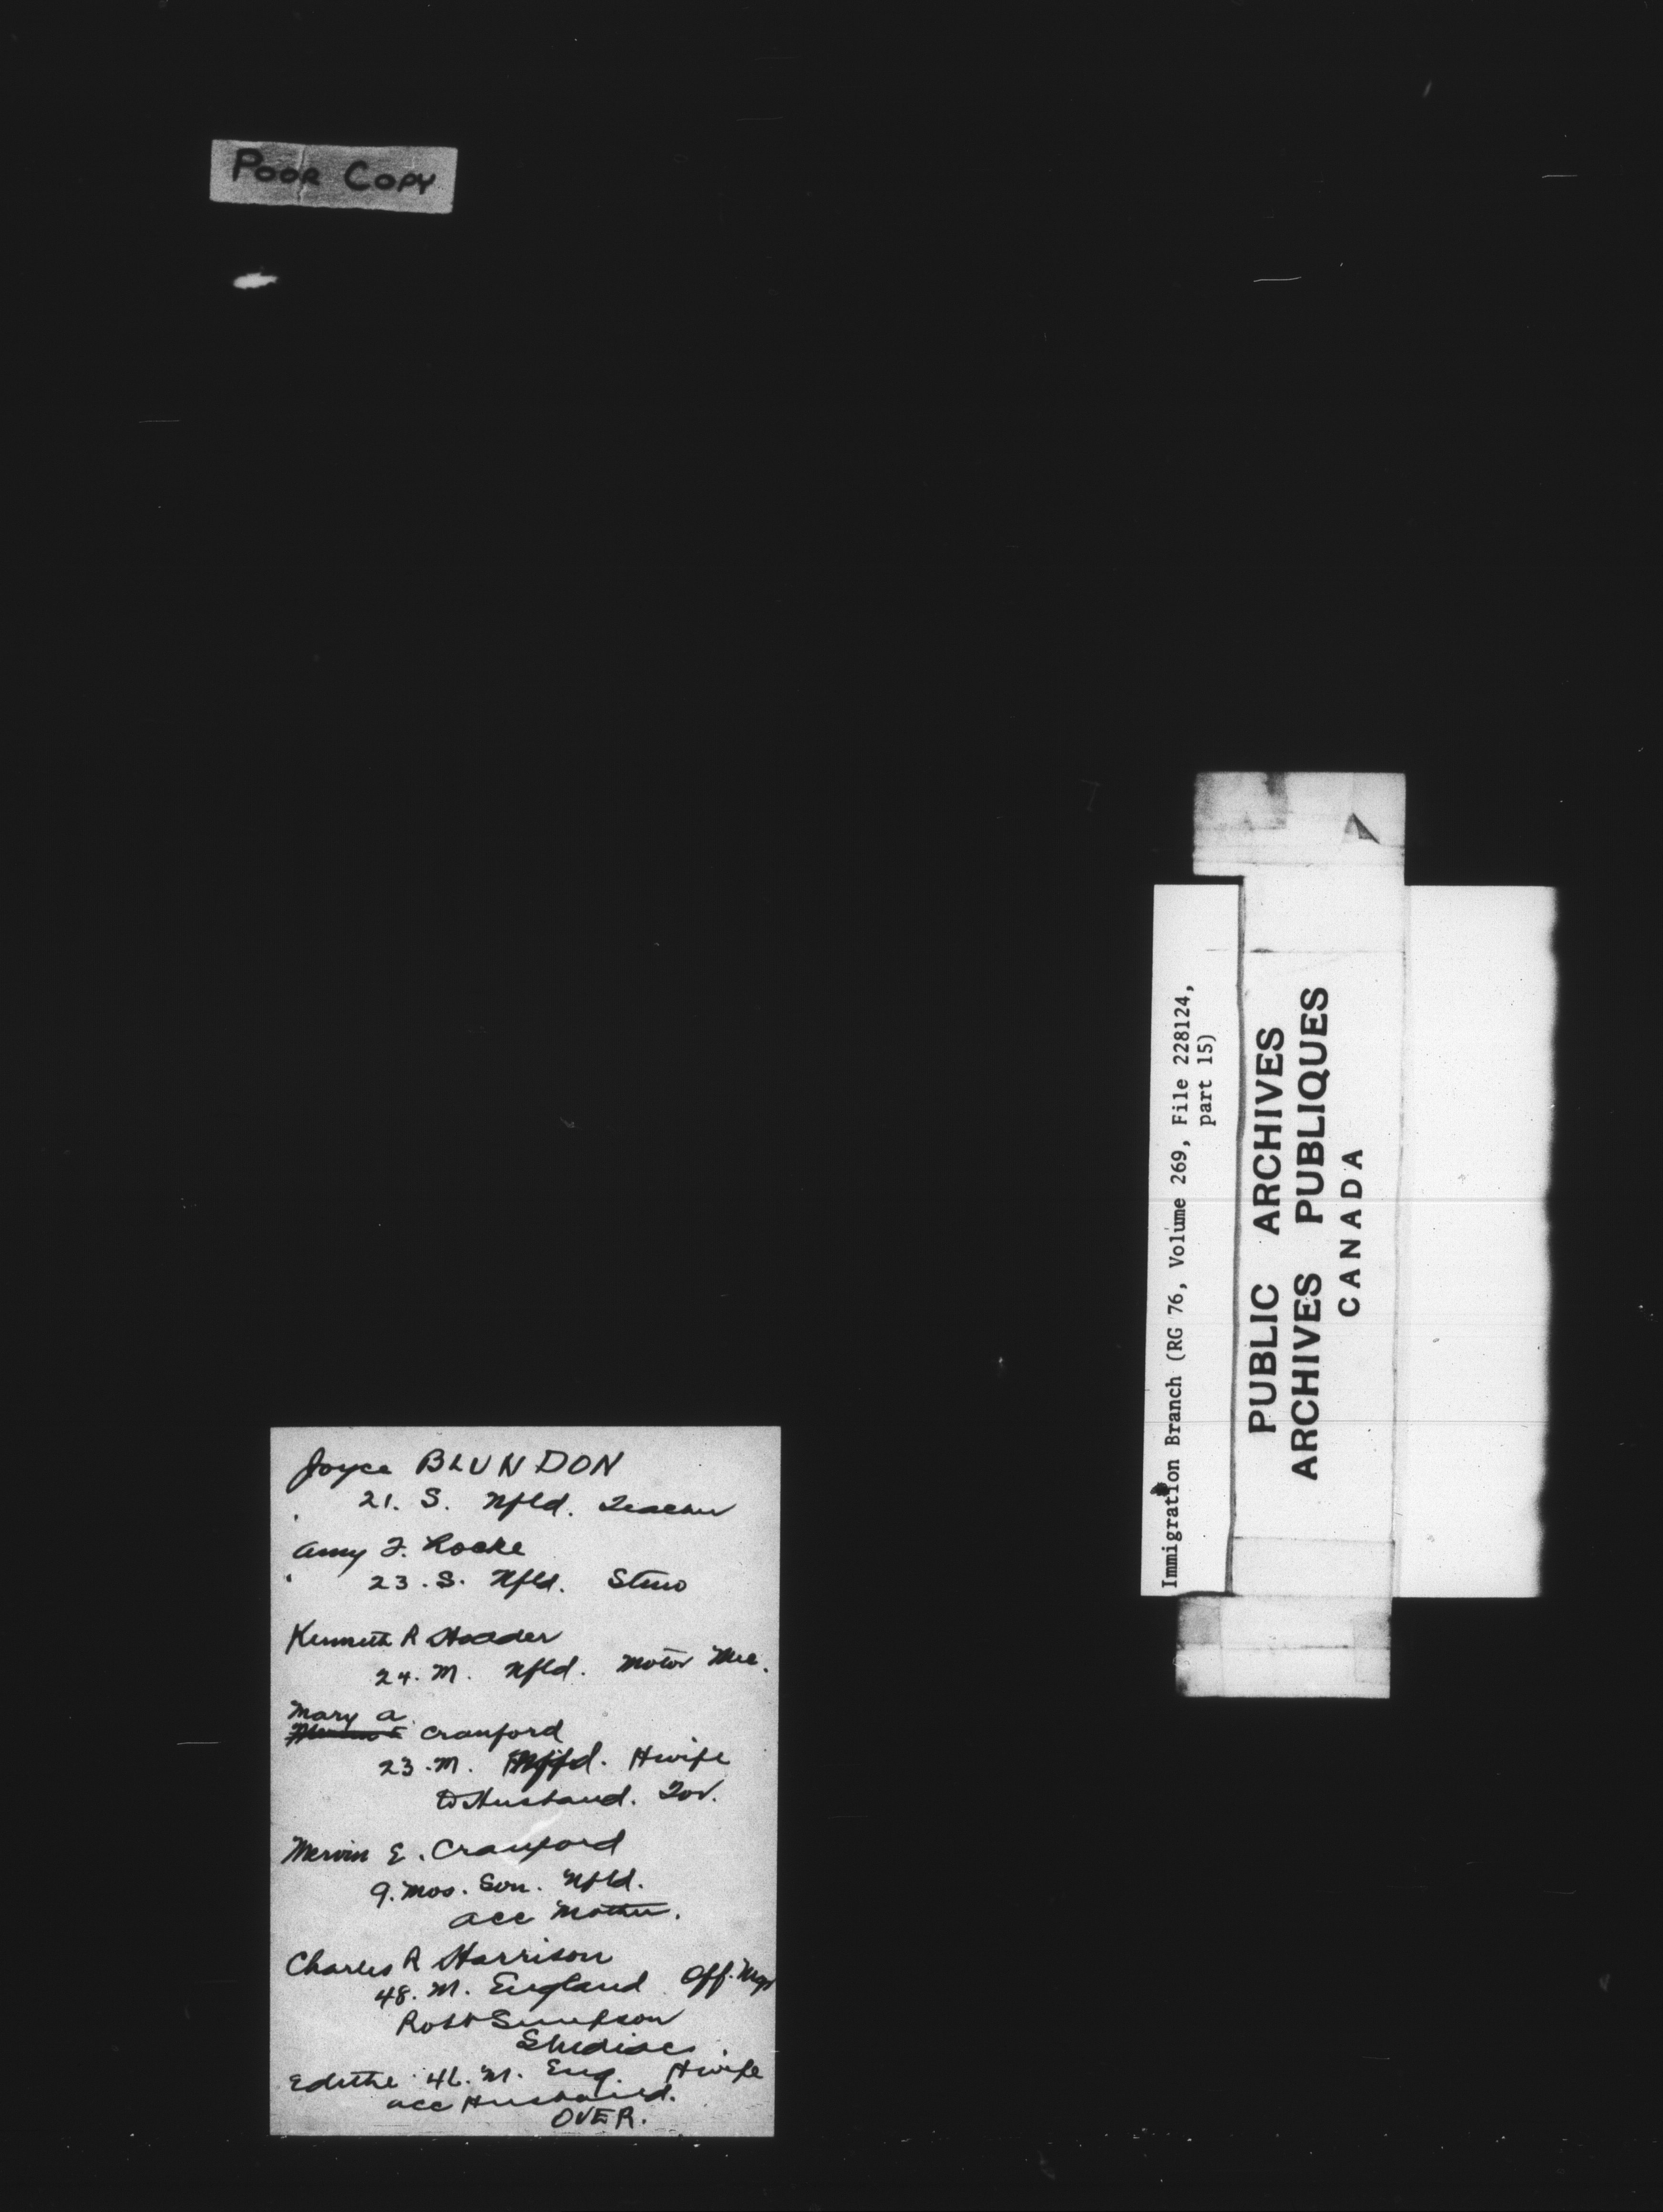 POOR COPY
Joyce BLUNDON
21. S. Nfld. Teacher
Amy F. Locke
23. S. Nfld. Steno
Kenneth R
24. M. Nfld. Motor Mec.
Mary A.
Cranford
23. M. Nfld. Hwife
to Husband. Tor.
Mervin E. Cranford
9. Mos. Son. Nfld.
acc Mother.
Charles R Harrison
48. M. England Off. Mgr
Robt Simpson
Shediac
Edithe 46. M. Eng. Hwife
acc Husband.
OVER.
Immigration Branch (RG 76, Volume 269, File 228124,
part 15)
PUBLIC ARCHIVES
ARCHIVES PUBLIQUES
CANADA